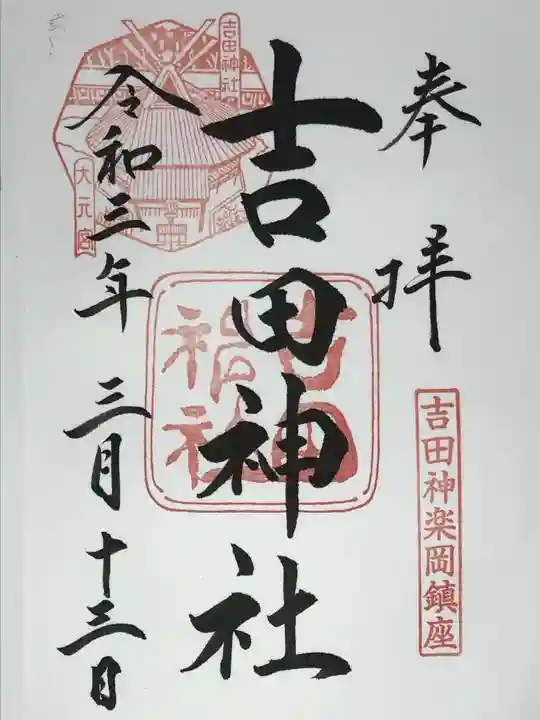 奉拝
吉田神楽岡鎮座
吉田神社
吉田
神社
吉田神社
大元宮
令和三年
三月十三日